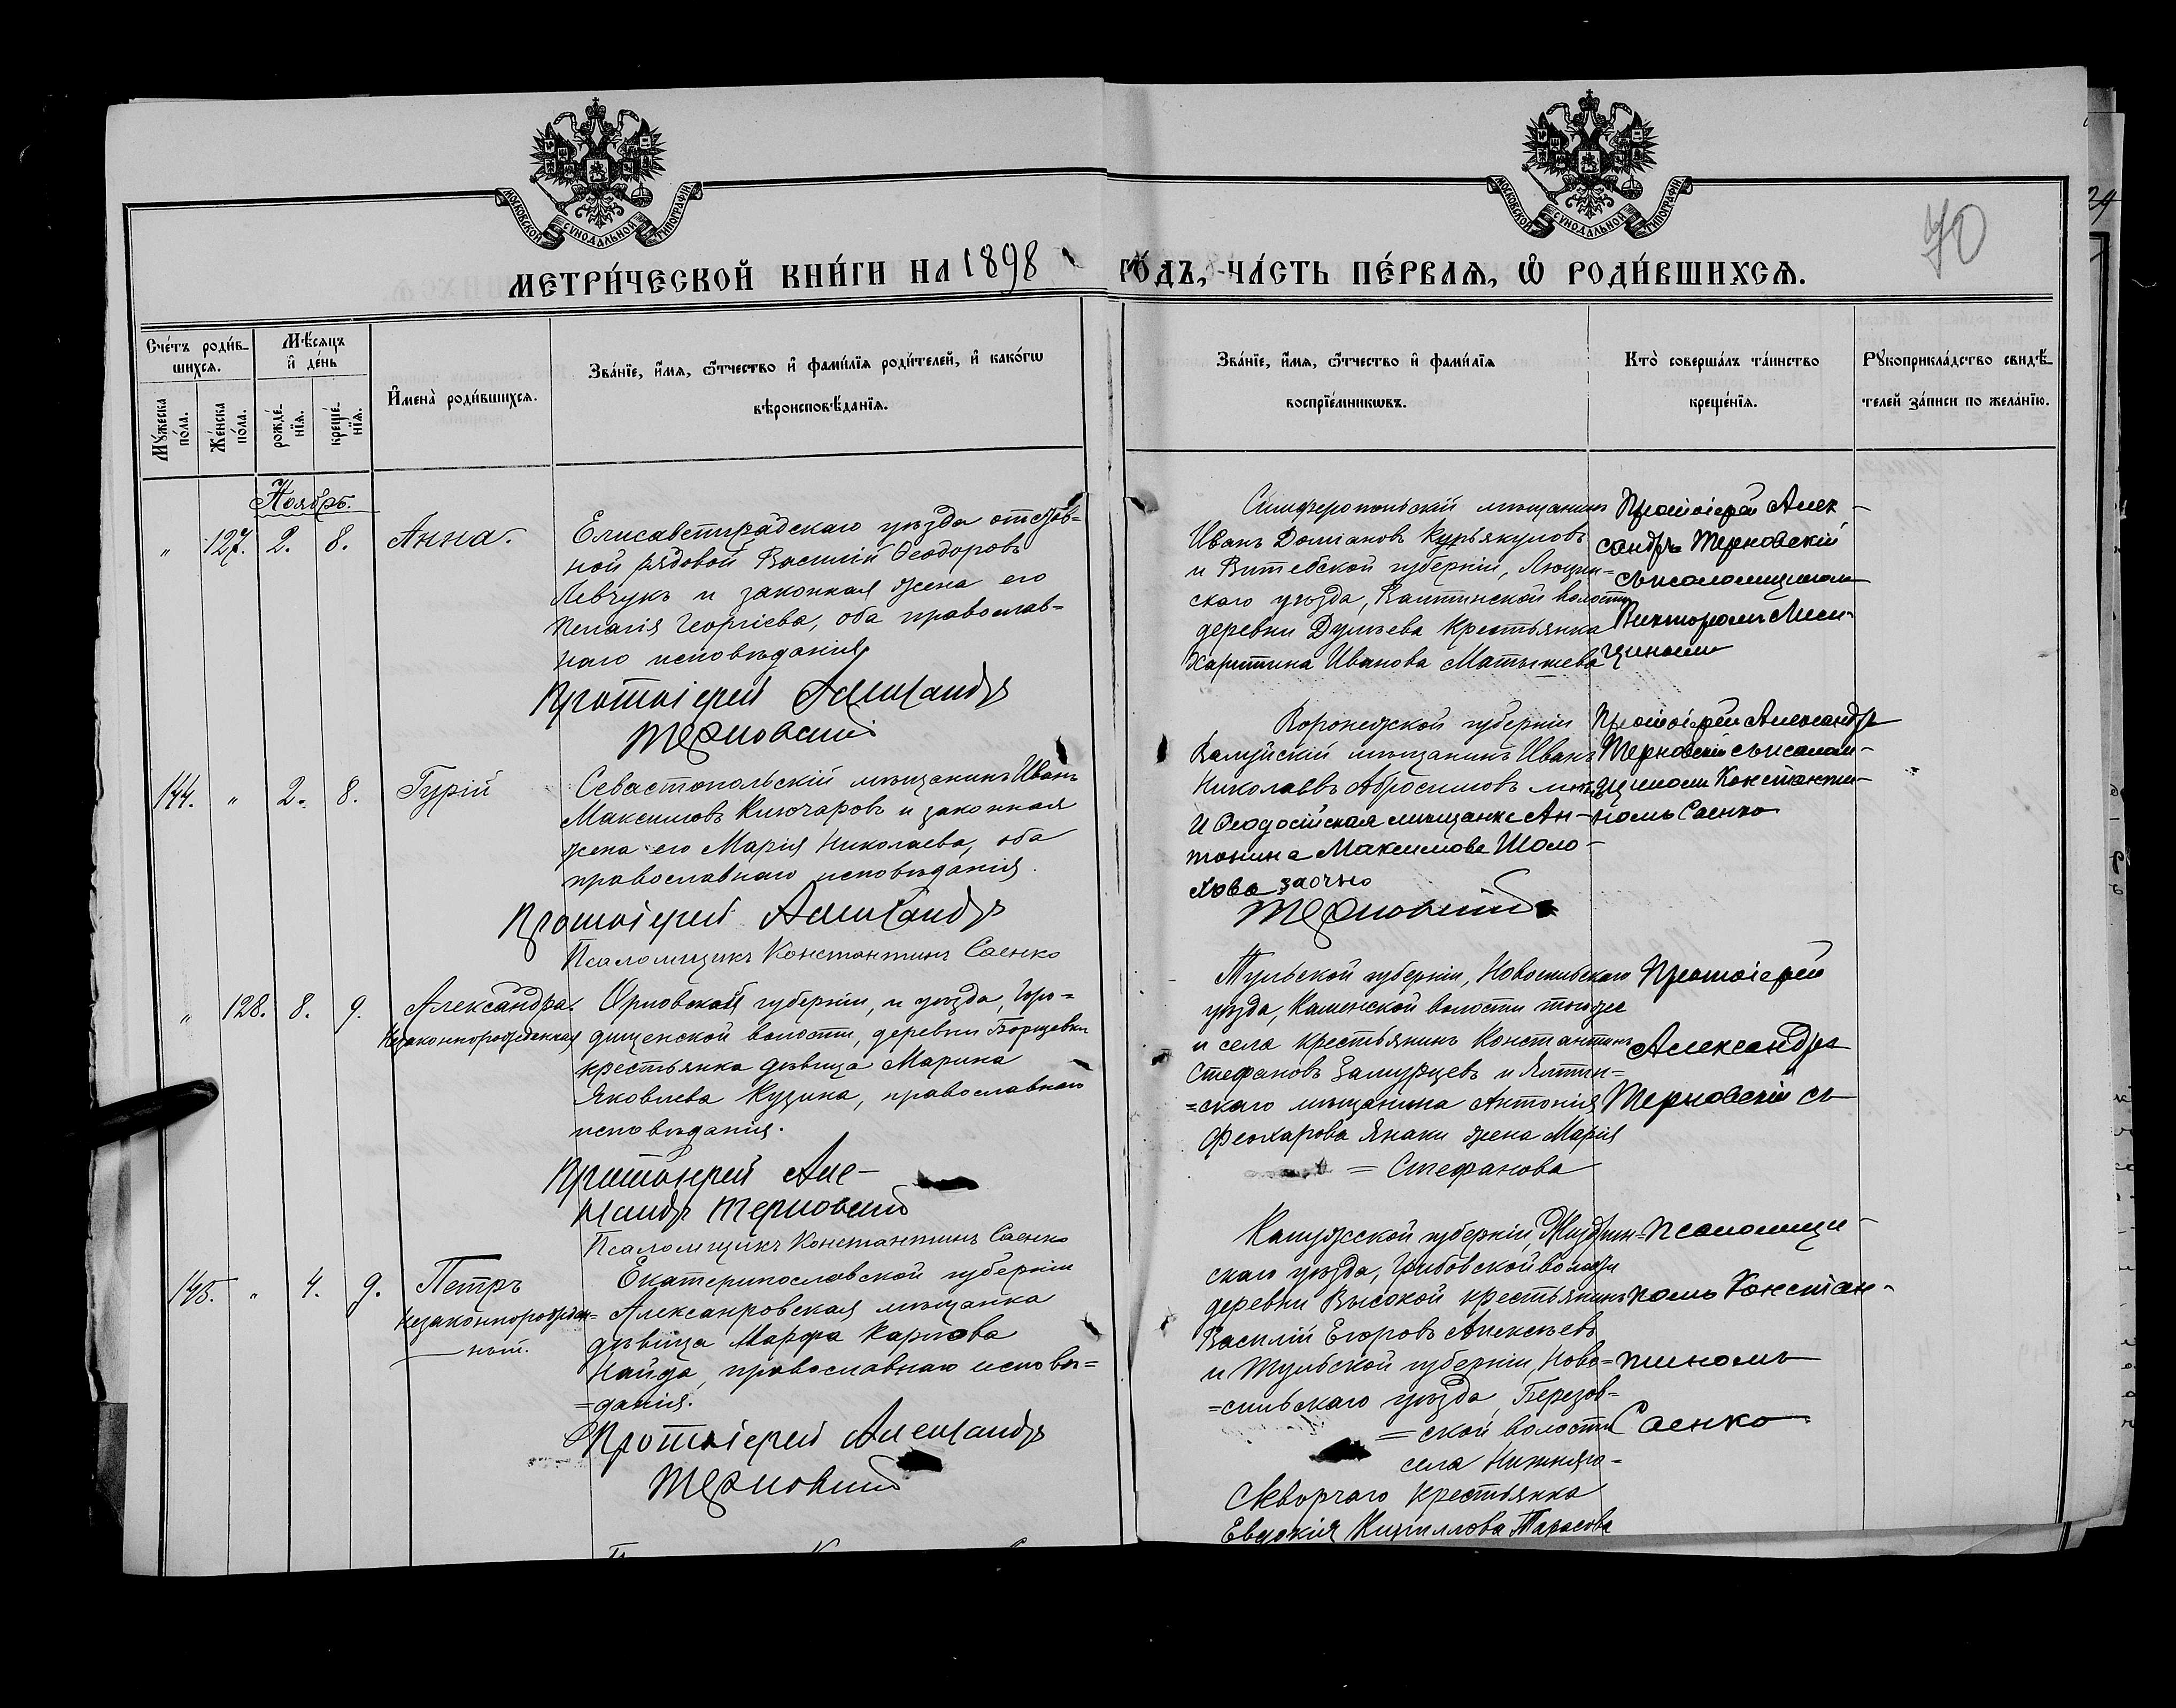 МОСКОВСКОЙ СѴНОДАЛЬНОЙ ТИПОГРАФІИ
МОСКОВСКОЙ СѴНОДАЛЬНОЙ ТИПОГРАФІИ
70
МЕТРИ́ЧЕСКОЙ КНИ́ГИ НА 1898 ГО́ДЪ, ЧА́СТЬ ПЕ́РВАѦ, Ѽ РОДИ́ВШИХСѦ.
Сче́тъ роди́в-
шихсѧ.
Мꙋ́жеска по́ла.
Же́нска по́ла.
Мѣ́сѧцъ и҆ де́нь
рожде́-нїѧ.
креще́-нїѧ.
И҆мена̀ роди́вшихсѧ.
Зва́нїе, и҆́мѧ, ѻ҆́тчество и҆ фами́лїѧ роди́телей, и҆ како́гѡ
вѣроисповѣ́данїѧ.
Зва́нїе, и҆́мѧ, ѻ҆́тчество и҆ фами́лїѧ
воспрїе́мникѡвъ.
Кто̀ соверша́лъ та́инство
креще́нїѧ.
Рꙋкоприкла́дство свидѣ́-
телей за́писи по жела́нїю.
Ноябрь.
" 127. 2. 8. Анна.
Елисаветградскаго уѣзда отстав=
ной рядовой Василій Ѳеодоровъ
Левчукъ и законная жена его
Пелагія Георгіева, оба православ=
наго исповѣданія,
Протоіерей Александръ
Терновский
Симферопольскій мѣщанинъ
Иванъ Курьякуловъ
и Витебской губерніи, Люцин=
скаго уѣзда, волости
деревни крестьянка
Харитина Иванова Матышева
Протоіерей Алек-
сандръ Терновскій
съ псаломщикомъ
Викторомъ
144. " 2. 8. Гурій
Севастопольскій мѣщанинъ Иванъ
Максимовъ Ключаровъ и законная
жена его Марія Николаева, оба
православнаго исповѣданія.
Протоіерей Александръ
Псаломщикъ Константинъ Саенко
Воронежской губерніи
Валуйскій мѣщанинъ Иванъ
Николаевъ Абросимовъ
и Ѳеодосійская мѣщанка Ан-
тонина Максимова Шоло-
хова заочно
Терновский
Протоіерей Александръ
Терновскій съ псалом-
щикомъ Константи-
номъ Саенко
" 128. 8. 9. Александра.
Незаконнорожденная
Орловской губерніи, и уѣзда, Горо=
дищенской волости, деревни Борщевки
крестьянка дѣвица Марина
Яковлева Кузина, православнаго
исповѣданія.
Протоіерей Але-
ксандръ Терновский
Псаломщикъ Константинъ Саенко
Тульской губерніи, Новосильскаго
уѣзда, Каменской волости того же
и села крестьянинъ Константинъ
Стефановъ Замурцевъ и Ялтин=
=скаго мѣщанина Антонія
Феохарова Янаки жена Марія
= Стефанова
Протоіерей
Александръ
Терновскій съ
145. " 4. 9. Петръ
Незаконнорожден=
ный.
Екатеринославской губерніи
Александровская мѣщанка
дѣвица Марфа Карпова
Найда, православнаго исповѣ=
=данія.
Протоіерей Александръ
Терновский
Калужской губерніи, Жиздрин=
скаго уѣзда, Грибовской волости
деревни Высокой крестьянинъ
Василій Егоровъ Алексѣевъ
и Тульской губерніи, Ново=
=сильскаго уѣзда, Березов=
=ской волости
села Нижняго=
Скворчаго крестьянка
Евдокія Кириллова Тарасова
псаломщи-
комъ Констан-
тиномъ
Саенко